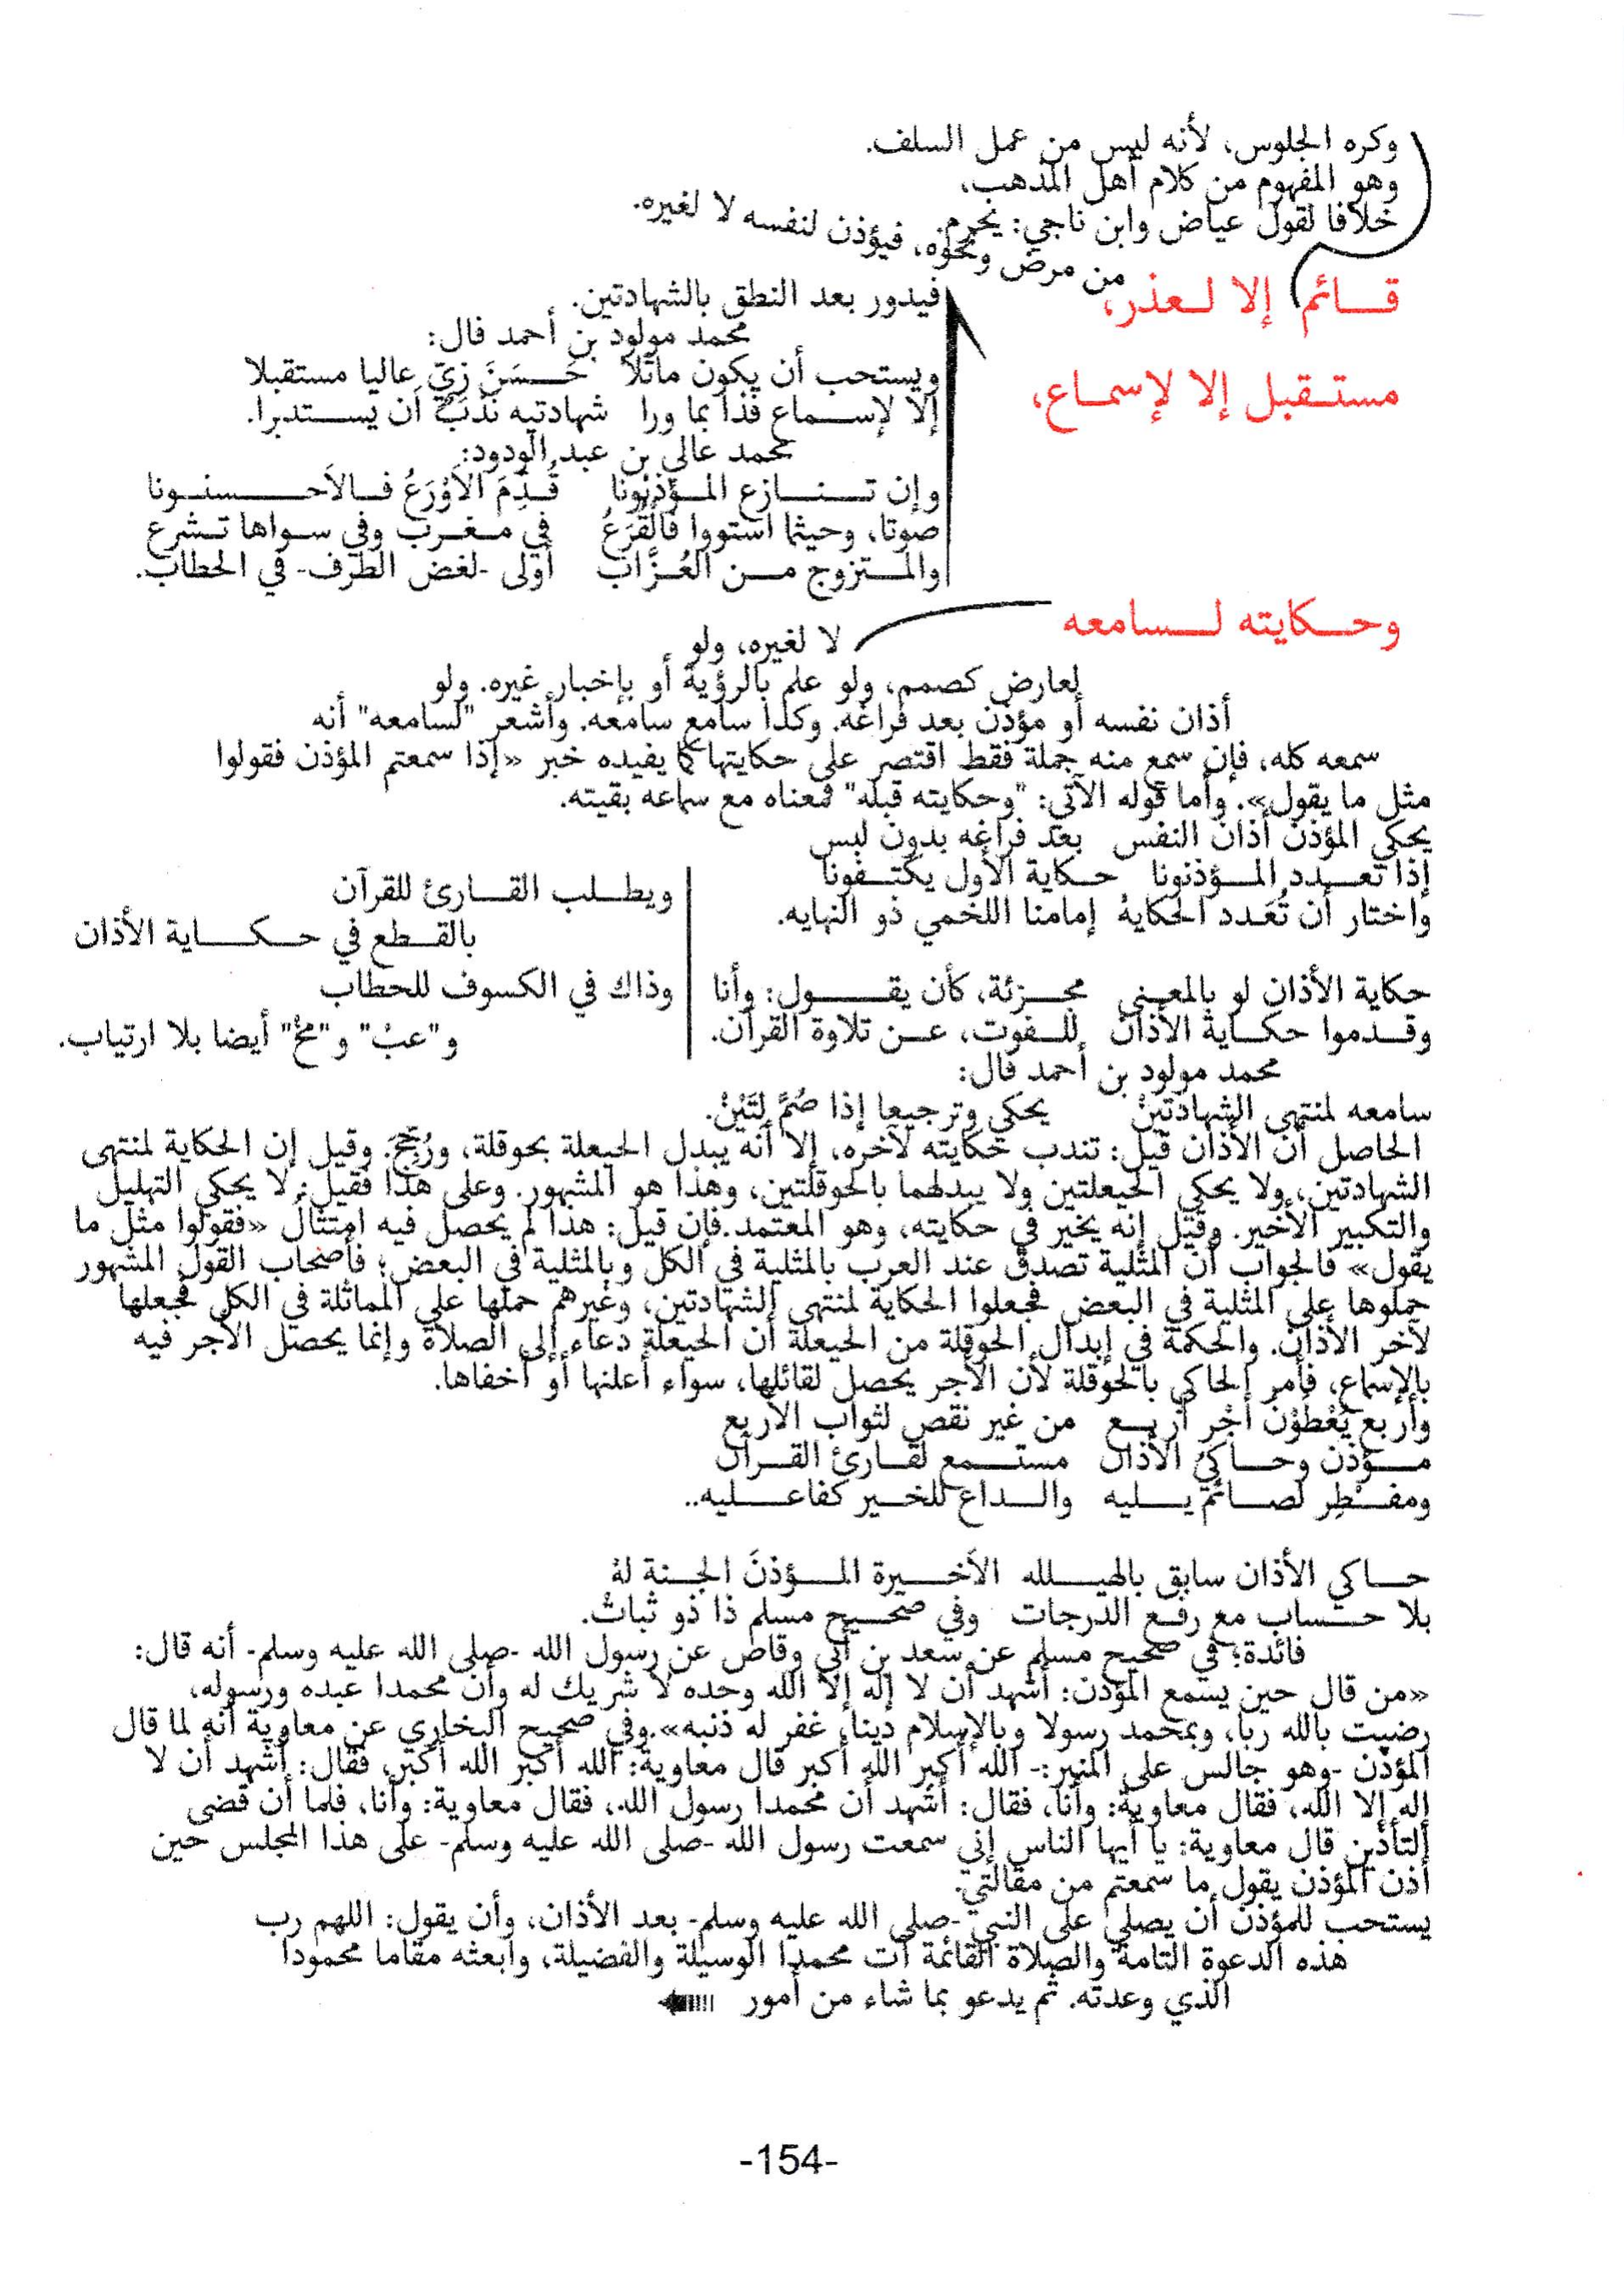 وكره الجلوس، لأنه ليس من عمل السلف.
وهو المفهوم من كلام أهل المذهب،
خلافا لقول عياض وابن ناجي: يحرم.
قائم إلا لعذر،
من مرض ونحوه، فيؤذن لنفسه لا لغيره.
مستقبل إلا لإسماع،
فيدور بعد النطق بالشهادتين.
محمد مولود بن أحمد فال:
ويستحب أن يكون ماثلا حَسَنَ زِيّ عاليا مستقبلا
إلا لإسماع فذا بما ورا شهادتيه نَدْبٌ أن يستدبرا.
محمد عالي بن عبد الودود:
وإن تنازع المؤذنونا قُدِّمَ الأَوْرَعُ فالأَحسنونا
صوتا، وحيثما استووا فالقُرَعُ في مغرب وفي سواها تشرع
والمتزوج من العُزَّاب أولى -لغض الطرف- في الحطاب.
وحكايته لسامعه
لا لغيره، ولو
لعارض كصمم، ولو علم بالرؤية أو بإخبار غيره. ولو
أذان نفسه أو مؤذن بعد فراغه. وكذا سامع سامعه. وأشعر "لسامعه" أنه
سمعه كله، فإن سمع منه جملة فقط اقتصر على حكايتها كما يفيده خبر «إذا سمعتم المؤذن فقولوا
مثل ما يقول». وأما قوله الآتي: "وحكايته قبله" فمعناه مع سماعه بقيته.
يحكي المؤذن أذان النفس بعد فراغه بدون لبس
إذا تعدد المؤذنونا حكاية الأول يكتفونا
واختار أن تُعَدد الحكايهْ إمامنا اللخمي ذو النهايه.
حكاية الأذان لو بالمعنى مجزئة، كأن يقول: وأنا
وقدموا حكاية الأذان للفوت، عن تلاوة القرآن.
ويطلب القارئ للقرآن
بالقطع في حكاية الأذان
وذاك في الكسوف للحطاب
و"عبْ" و"مخْ" أيضا بلا ارتياب.
محمد مولود بن أحمد فال:
سامعه لمنتهى الشهادتينْ يحكي وترجيعا إذا ضُمَّ لِتَيْنْ.
الحاصل أن الأذان قيل: تندب حكايته لآخره، إلا أنه يبدل الحيعلة بحوقلة، ورُجِّحَ. وقيل إن الحكاية لمنتهى
الشهادتين، ولا يحكي الحيعلتين ولا يبدلهما بالحوقلتين، وهذا هو المشهور. وعلى هذا فقيل: لا يحكي التهليل
والتكبير الأخير. وقيل إنه يخير في حكايته، وهو المعتمد.فإن قيل: هذا لم يحصل فيه امتثال «فقولوا مثل ما
يقول» فالجواب أن المثلية تصدق عند العرب بالمثلية في الكل وبالمثلية في البعض؛ فأصحاب القول المشهور
حملوها على المثلية في البعض فجعلوا الحكاية لمنتهى الشهادتين، وغيرهم حملها على المماثلة في الكل فجعلها
لآخر الأذان. والحكمة في إبدال الحوقلة من الحيعلة أن الحيعلة دعاء إلى الصلاة وإنما يحصل الأجر فيه
بالإسماع، فأمر الحاكي بالحوقلة لأن الأجر يحصل لقائلها، سواء أعلنها أو أخفاها.
وأربع يُعْطَوْنَ أجْر أربع من غير نقص لثواب الأربع
مؤذن وحاكيُ الأذان مستمع لقارئ القرآن
ومفطِر لصائم يليه والداع للخير كفاعليه..
حاكي الأذان سابق بالهيلله الأخيرة المؤذنَ الجنة لهْ
بلا حساب مع رفع الدرجات وفي صحيح مسلم ذا ذو ثباتْ.
فائدة: في صحيح مسلم عن سعد بن أبي وقاص عن رسول الله -صلى الله عليه وسلم- أنه قال:
«من قال حين يسمع المؤذن: أشهد أن لا إله إلا الله وحده لا شريك له وأن محمدا عبده ورسوله،
رضيت بالله ربا، وبمحمد رسولا وبالإسلام دينا، غفر له ذنبه».وفي صحيح البخاري عن معاوية أنه لما قال
المؤذن -وهو جالس على المنبر:- الله أكبر الله أكبر قال معاوية: الله أكبر الله أكبر، فقال: أشهد أن لا
إله إلا الله، فقال معاوية: وأنا، فقال: أشهد أن محمدا رسول الله، فقال معاوية: وأنا، فلما أن قضى
التأذين قال معاوية: يا أيها الناس إني سمعت رسول الله -صلى الله عليه وسلم- على هذا المجلس حين
أذن المؤذن يقول ما سمعتم من مقالتي.
يستحب للمؤذن أن يصلي على النبي -صلى الله عليه وسلم- بعد الأذان، وأن يقول: اللهم رب
هذه الدعوة التامة والصلاة القائمة آت محمدا الوسيلة والفضيلة، وابعثه مقاما محمودا
الذي وعدته. ثم يدعو بما شاء من أمور
-154-